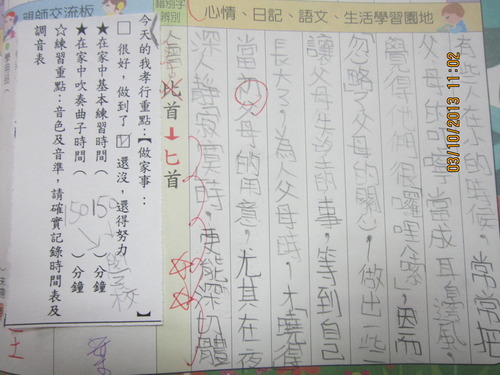 心情、日記、語文、生活學習園地
03/10/2013 11:02
有些人在小的時候，常常把
父母的嘮叨當成耳邊風，
覺得他們很囉哩囉嗦，因而
忽略了父母的關心，做出一些
讓父母失望的事，等到自己
長大了，為人父母時，才曉得
當初父母的用意，尤其在一夜
深人靜寂寞時，更能深切體
錯別字辨別
比首→匕首
親師交流板
今天的我孝行重點：【做家事：】
□很好，做到了☑還沒，還得努力
★在家中基本練習時間（150）分鐘
★在家中吹奏曲子時間（150）分鐘
☆練習重點：音色及音準，請確實記錄時間表及
調音表
學校